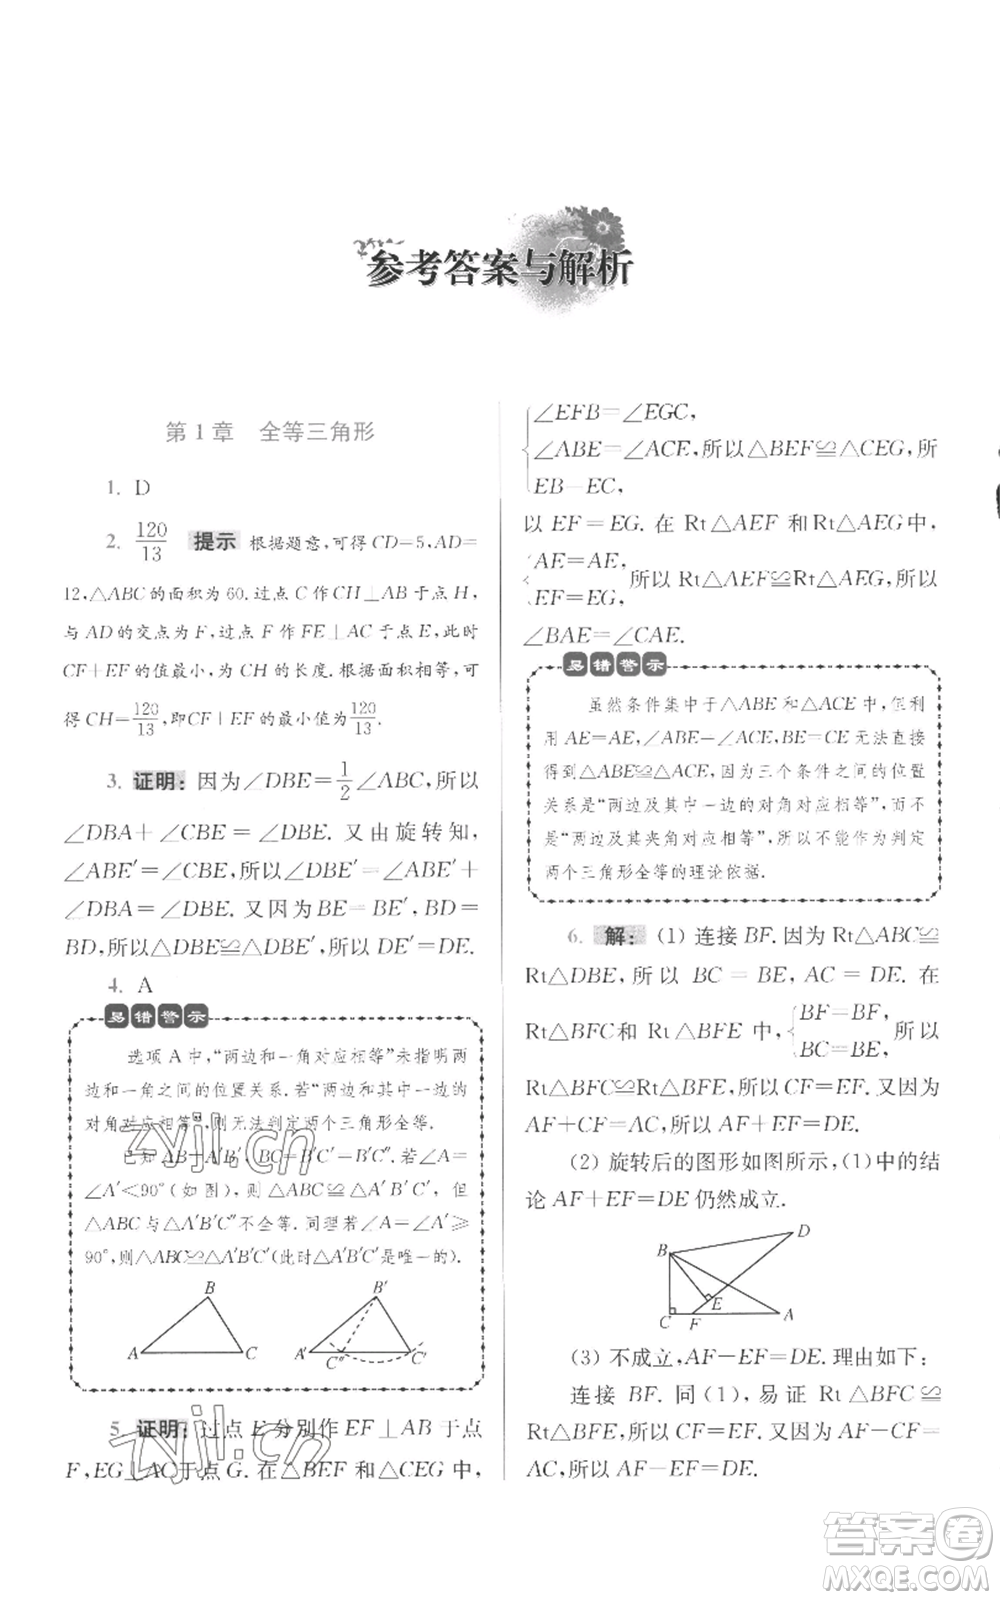 参考答案与解析
第1章 全等三角形
1. D
2. 120/13 提示 根据题意,可得CD=5,AD=
12,△ABC的面积为60.过点C作CH⊥AB于点H,
与AD的交点为F,过点F作FE⊥AC于点E,此时
CF+EF的值最小,为CH的长度.根据面积相等,可
得CH=120/13,即CF+EF的最小值为120/13.
3. 证明:因为∠DBE=1/2∠ABC,所以
∠DBA+∠CBE=∠DBE.又由旋转知,
∠ABE′=∠CBE,所以∠DBE=∠ABE′+
∠DBA=∠DBE′.又因为BE=BE′,BD=
BD,所以△DBE≌△DBE′,所以DE′=DE.
4. A
易错警示
选项A中,“两边和一角对应相等”未指明两
边和一角之间的位置关系.若“两边及其中一角
对应相等”,则无法判定两个三角形全等.
已知AB=A′B′,BC=B′C′=B′C″.若∠A=
∠A′<90°(如图),则△ABC≌△A′B′C′,但
△ABC与△A′B′C″不全等.同理若∠A=∠A′≥
90°,则△ABC≌△A′B′C′(此时△A′B′C′是唯一的).
B
A
C
B′
A′
C″
C′
5. 证明:过点E分别作EF⊥AB于点
F,EG⊥AC于点G.在△BEF和△CEG中,
∠EFB=∠EGC,
∠ABE=∠ACE,所以△BEF≌△CEG,所
EB=EC,
以EF=EG.在Rt△AEF和Rt△AEG中,
AE=AE,
EF=EG,
所以Rt△AEF≌Rt△AEG,所以
∠BAE=∠CAE.
易错警示
虽然条件集中于△ABE和△ACE中,但利
用AE=AE,∠ABE=∠ACE,BE=CE无法直接
得到△ABE≌△ACE,因为三个条件之间的位置
关系是“两边及其中一边的对角对应相等”,而不
是“两边及其夹角对应相等”,所以不能作为判定
两个三角形全等的理论依据.
6. 解:(1)连接BF.因为Rt△ABC≌
Rt△DBE,所以BC=BE,AC=DE.在
Rt△BFC和Rt△BFE中,
BF=BF,
BC=BE,
所以
Rt△BFC≌Rt△BFE,所以CF=EF.又因为
AF+CF=AC,所以AF+EF=DE.
(2)旋转后的图形如图所示,(1)中的结
论AF+EF=DE仍然成立.
D
B
E
C F A
(3)不成立,AF-EF=DE.理由如下:
连接BF.同(1),易证Rt△BFC≌
Rt△BFE,所以CF=EF.又因为AF-CF=
AC,所以AF-EF=DE.
zyjl.cn
zyjl.cn
答案卷
MXQE.COM